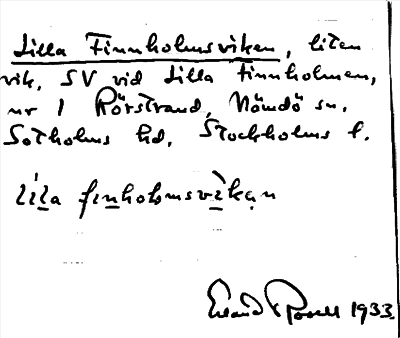 Lilla Finnholmsviken, liten
vik, SV vid Lilla Finnholmen,
nr 1 Rörstrand, Nämdö sn.
Sotholms hd, Stockholms l.
lila finholmsvikan
Erland Rosell 1933.